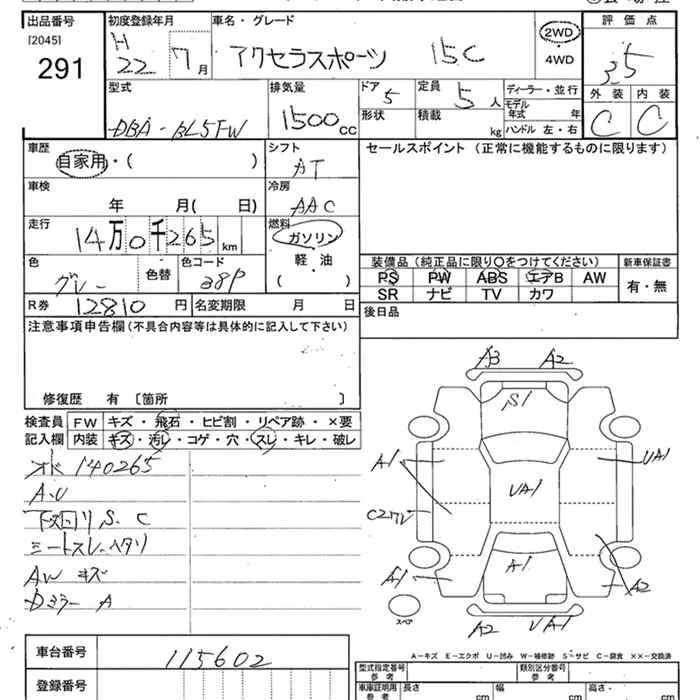 出品番号 初度登録年月 車名・グレード 評価点
[2045] H 22 7月 アクセラスポーツ 15C 2WD 3.5
291 4WD
型式 排気量 ドア 5 定員 5人 ディーラー・並行 外装 内装
DBA-BL5FW 1500cc 形状 積載 kg モデル年式 年 C C
ハンドル 左・右
車歴 シフト セールスポイント (正常に機能するものに限ります)
自家用・( ) AT
車検 冷房
年 月( 日) AAC
走行 14万0千265km 燃料
ガソリン
色 色替 色コード 軽・油 装備品(純正品に限り○をつけてください) 新車保証書
グレー 38P ( ) PS PW ABS エアB AW 有・無
SR ナビ TV カワ
R券 12810円 名変期限 月 日 後日品
注意事項申告欄(不具合内容等は具体的に記入して下さい)
修復歴 有 〔箇所 〕
検査員 FW キズ・飛石・ヒビ割・リペア跡・×要
記入欄 内装 キズ・汚レ・コゲ・穴・スレ・キレ・破レ
A3 A2
S1
オド 140265
A1 UA1
A.U
UA1
下回リ S.C
シートスレ・ヘタリ
AW キズ
A1 A1 A2
Dミラー A
スペア
A2 UA1
A-キズ E-エクボ U-凹み W-補修跡 S-サビ C-腐食 ××-交換済
車台番号 115602 型式指定番号 参考 類別区分番号 参考
登録番号 車庫証明用 参考 長さ cm 幅 cm 高さ・ cm